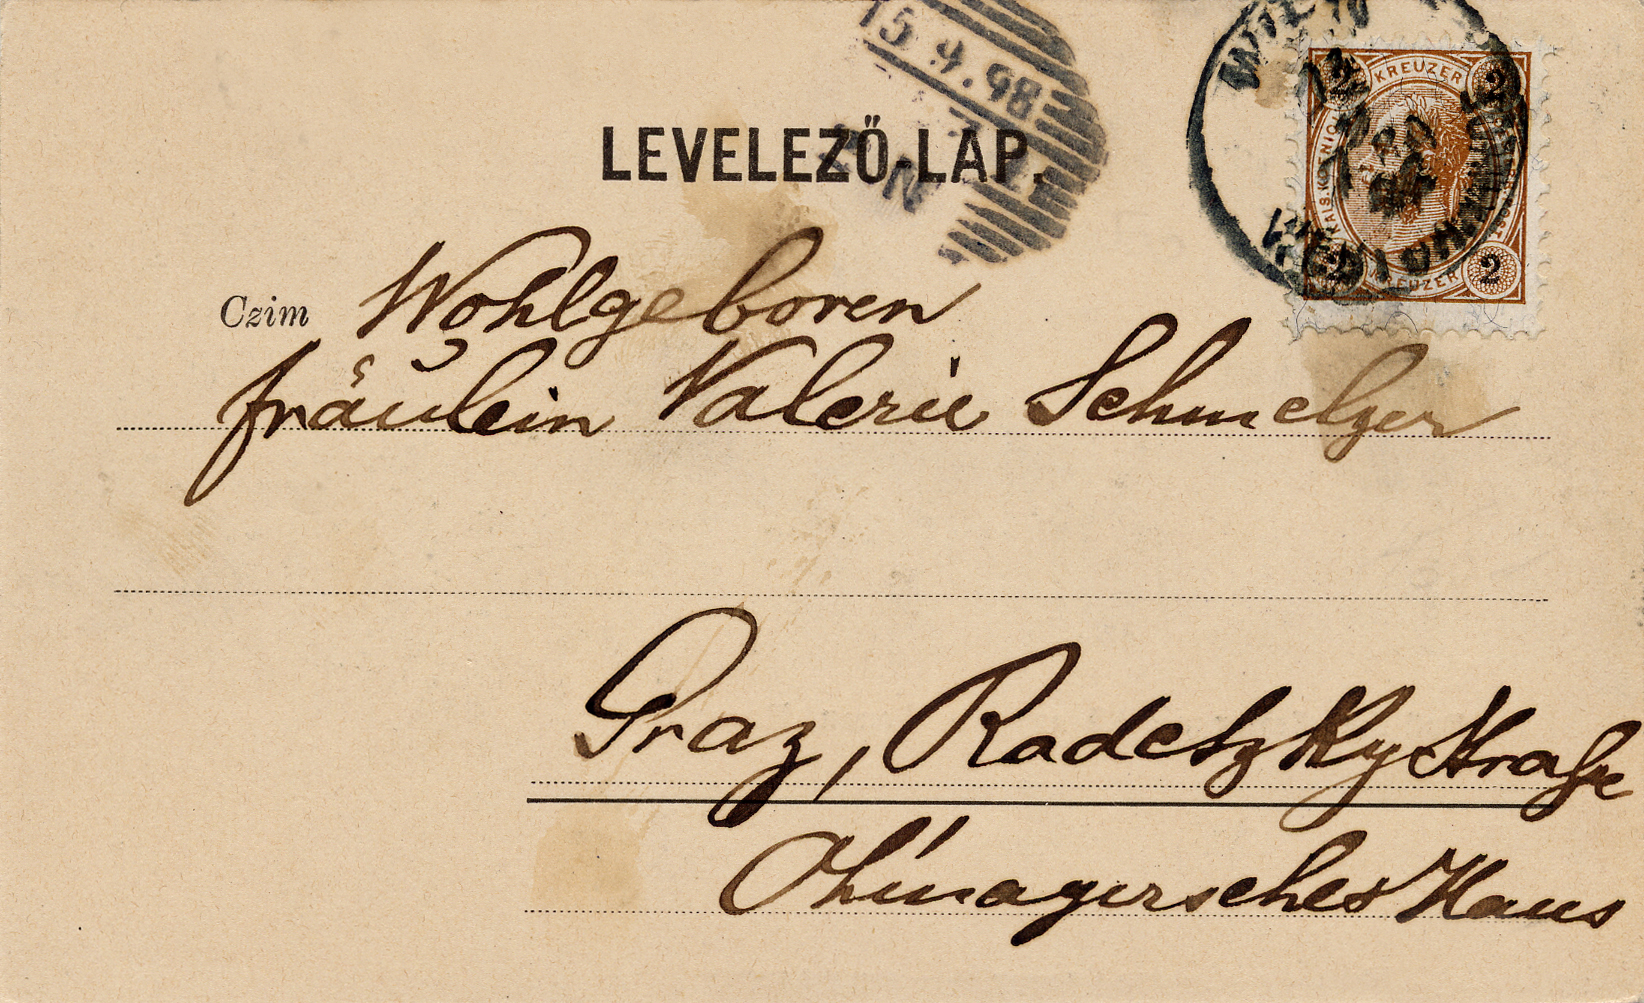 5 9.98
KREUZER
2 2
LEVELEZŐ-LAP.
Czim Wohlgeboren
Fräulein Valerie Schmelzer
2
Graz, Radetzkystraße
Haus